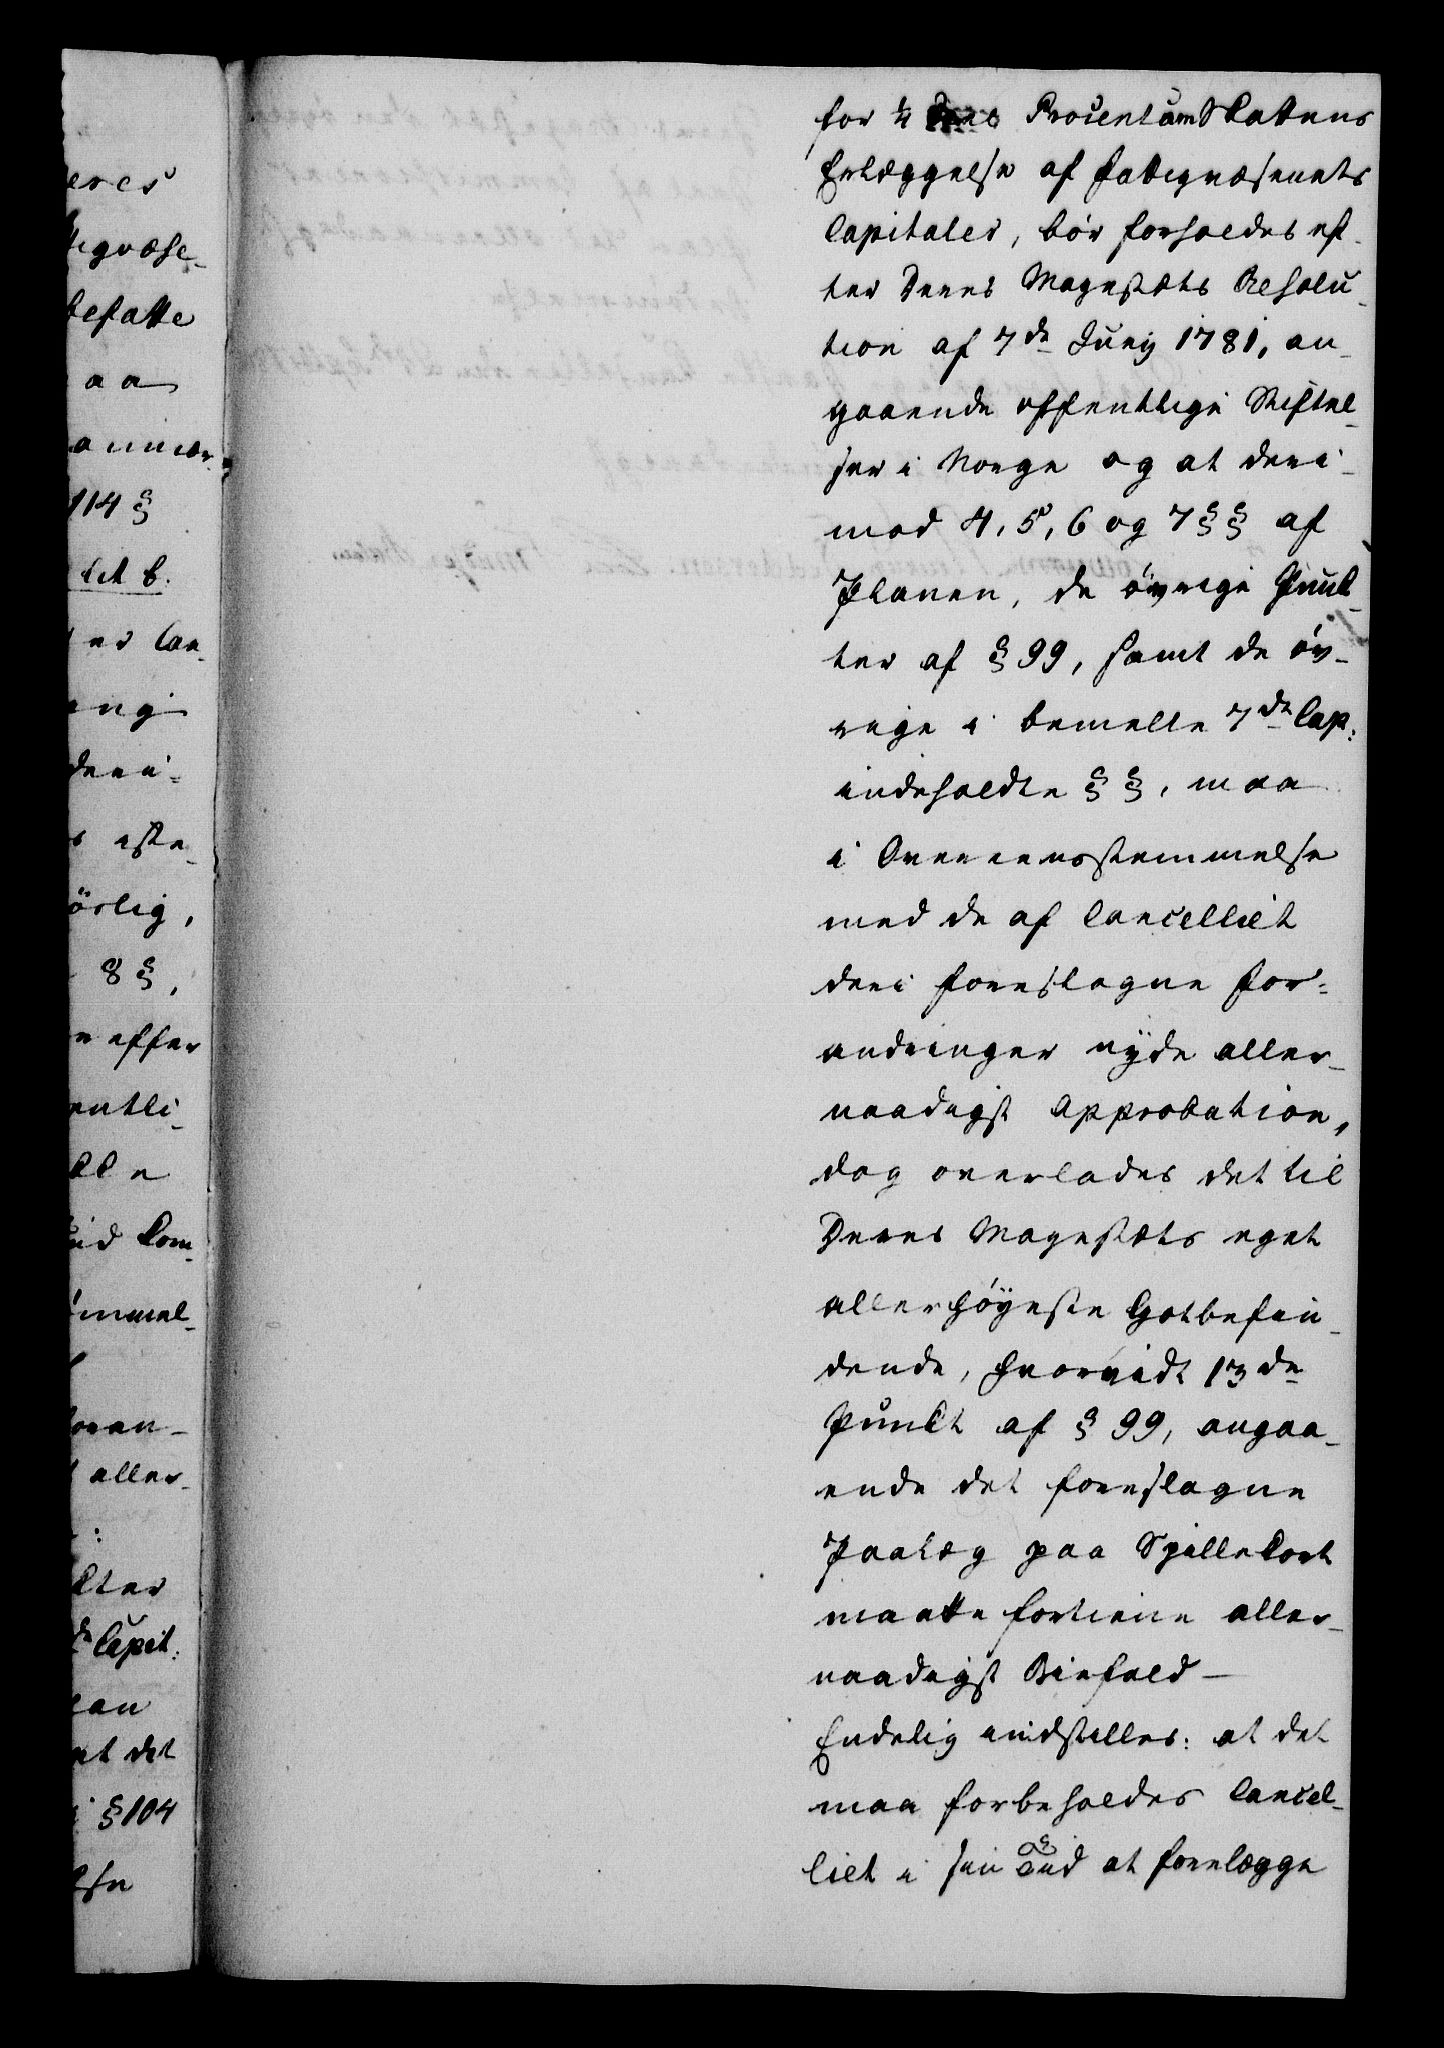 for ¼ Procentum Skattens
Erlæggelse af Fattigvæsenets
Capitaler, bør forholdes ef-
ter Deres Mayestæts Resolu-
tion af 7de Junij 1781, an-
gaaende offentlige Stiftel-
ser i Norge og at deri-
mod 4, 5, 6 og 7 §§ af
Planen, de øvrige Punk-
ter af § 99, samt de øv-
rige i bemelte 7de Cap:
indeholdte §§, maa
i Overeensstemmelse
med de af Cancelliet
deri foreslagne For-
andringer nyde aller-
naadigst Approbation,
dog overlades det til
Deres Mayestæts eget
allerhøyeste Gotbefin-
dende, hvorvidt 13de
Punkt af § 99, angaa-
ende det foreslagne
Paalæg paa Spillekort
maatte fortiene aller-
naadigst Biefald —
Endelig indstilles: at det
maa forbeholdes Cancel-
liet i sin Tid at forelægge
eres
igvæse-
befatte
aa
114 §
Lit b.
deri-
s efte-
8 §,
entli-
Com-
ommel-
foran-
aller-
kter
de Capit:
at det
i § 104
lse